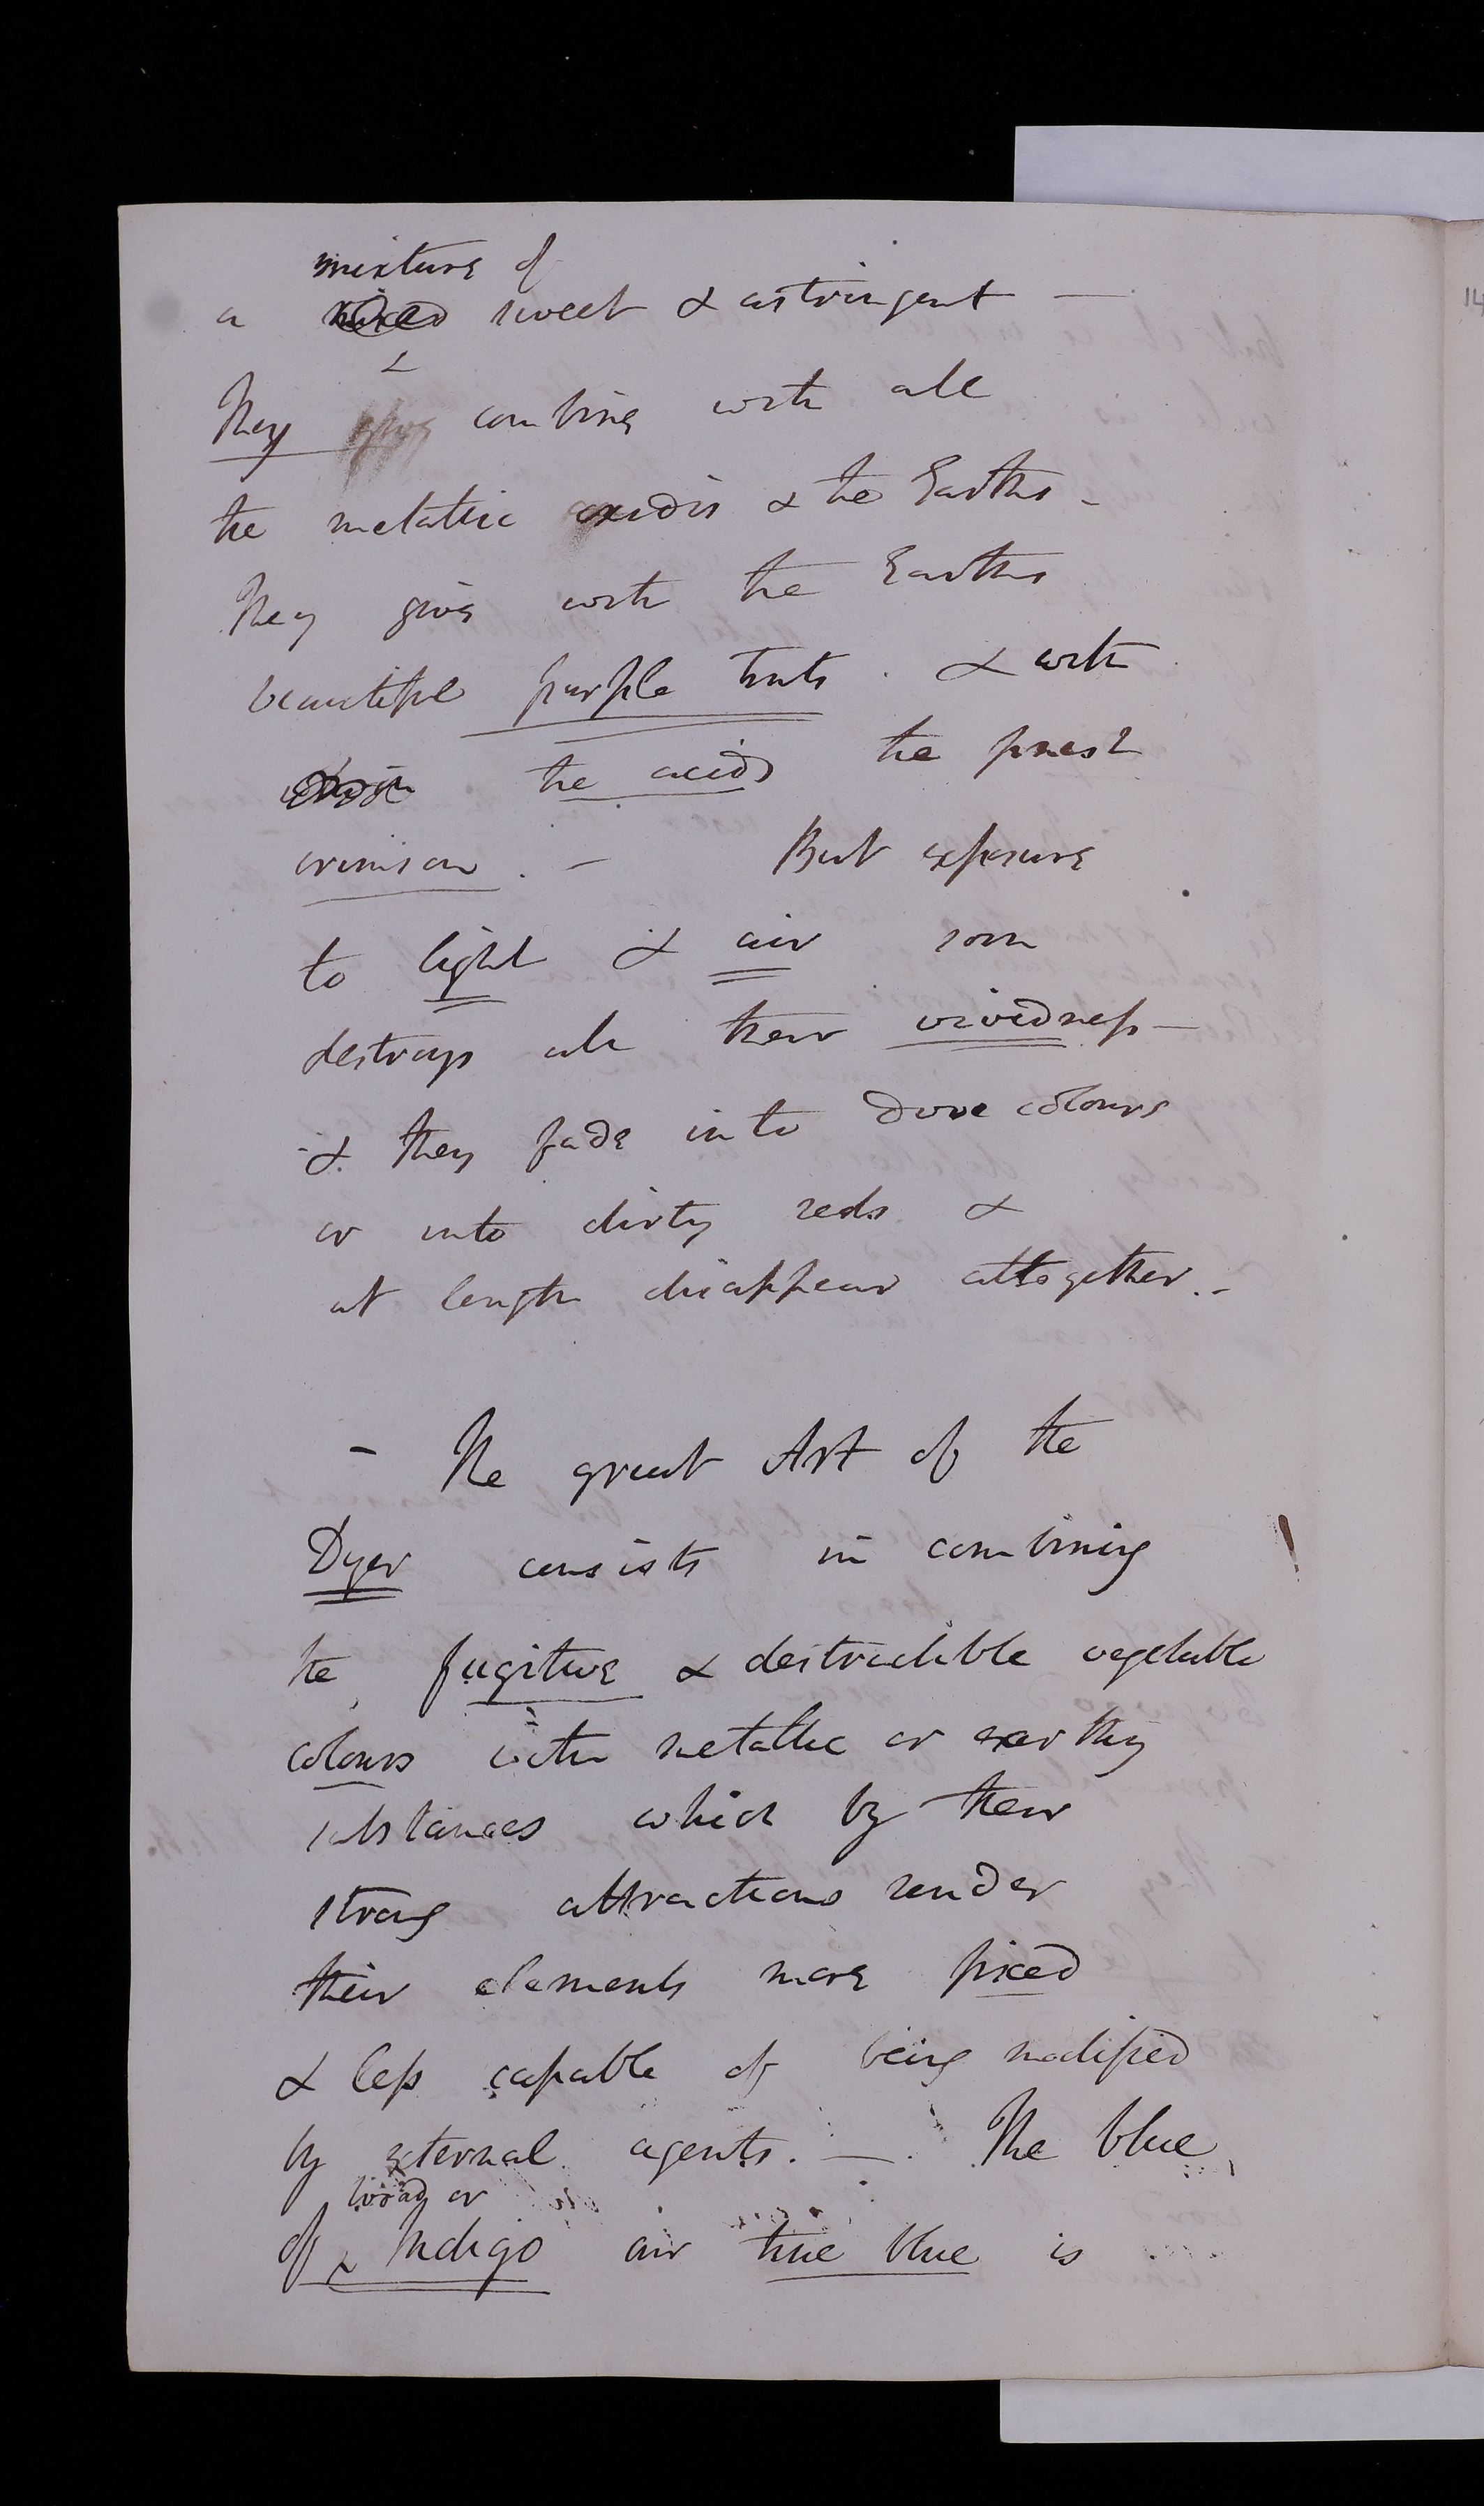 mixture of
a mixed sweet & astringent —
They give combine with all
the metallic oxides & the Earths –
They give with the Earths
beautiful purple tints . & with
the acids the finest
crimson . – But exposure
to light & air soon
destroys all their vividness –
& they fade into dove colours
or into dirty reds &
at length disappear altogether. –
– The great Art of the
Dyer consists in combining
the fugitive & destructible vegetable
colours with metallic or earthy
substances which by their
strong attractions render
their elements more fixed
& less capable of being modified
by external agents. — . The blue
woad or
of Indigo air true blue is
14